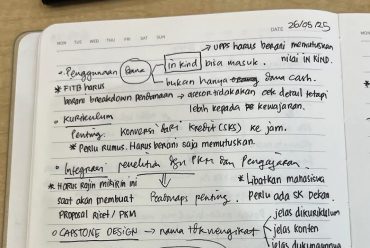 DATE 26/05/25
MON TUE WED THU FRI SAT SUN
→ UPPS harus berani memutuskan
nilai IN KIND.
• Penggunaan Dana
in kind bisa masuk.
bukan hanya dana cash.
* FITB harus
berani breakdown pendanaan → asesor tidak akan cek detail tetapi
lebih kepada kewajaran.
○ Kurikulum
Penting. Konversi dari Kredit (SKS) ke jam.
* Perlu rumus. Harus berani saja memutuskan.
○ Integrasi penelitian dgn PKM dan Pengajaran.
* Harus rajin mikirin ini
saat akan membuat
proposal Riset / PKM
Roadmaps penting.
* Libatkan mahasiswa
Perlu ada SK Dekan.
○ CAPSTONE DESIGN → nama tdk mengikat
jelas dikurikulum
jelas konten
jelas dukungannya